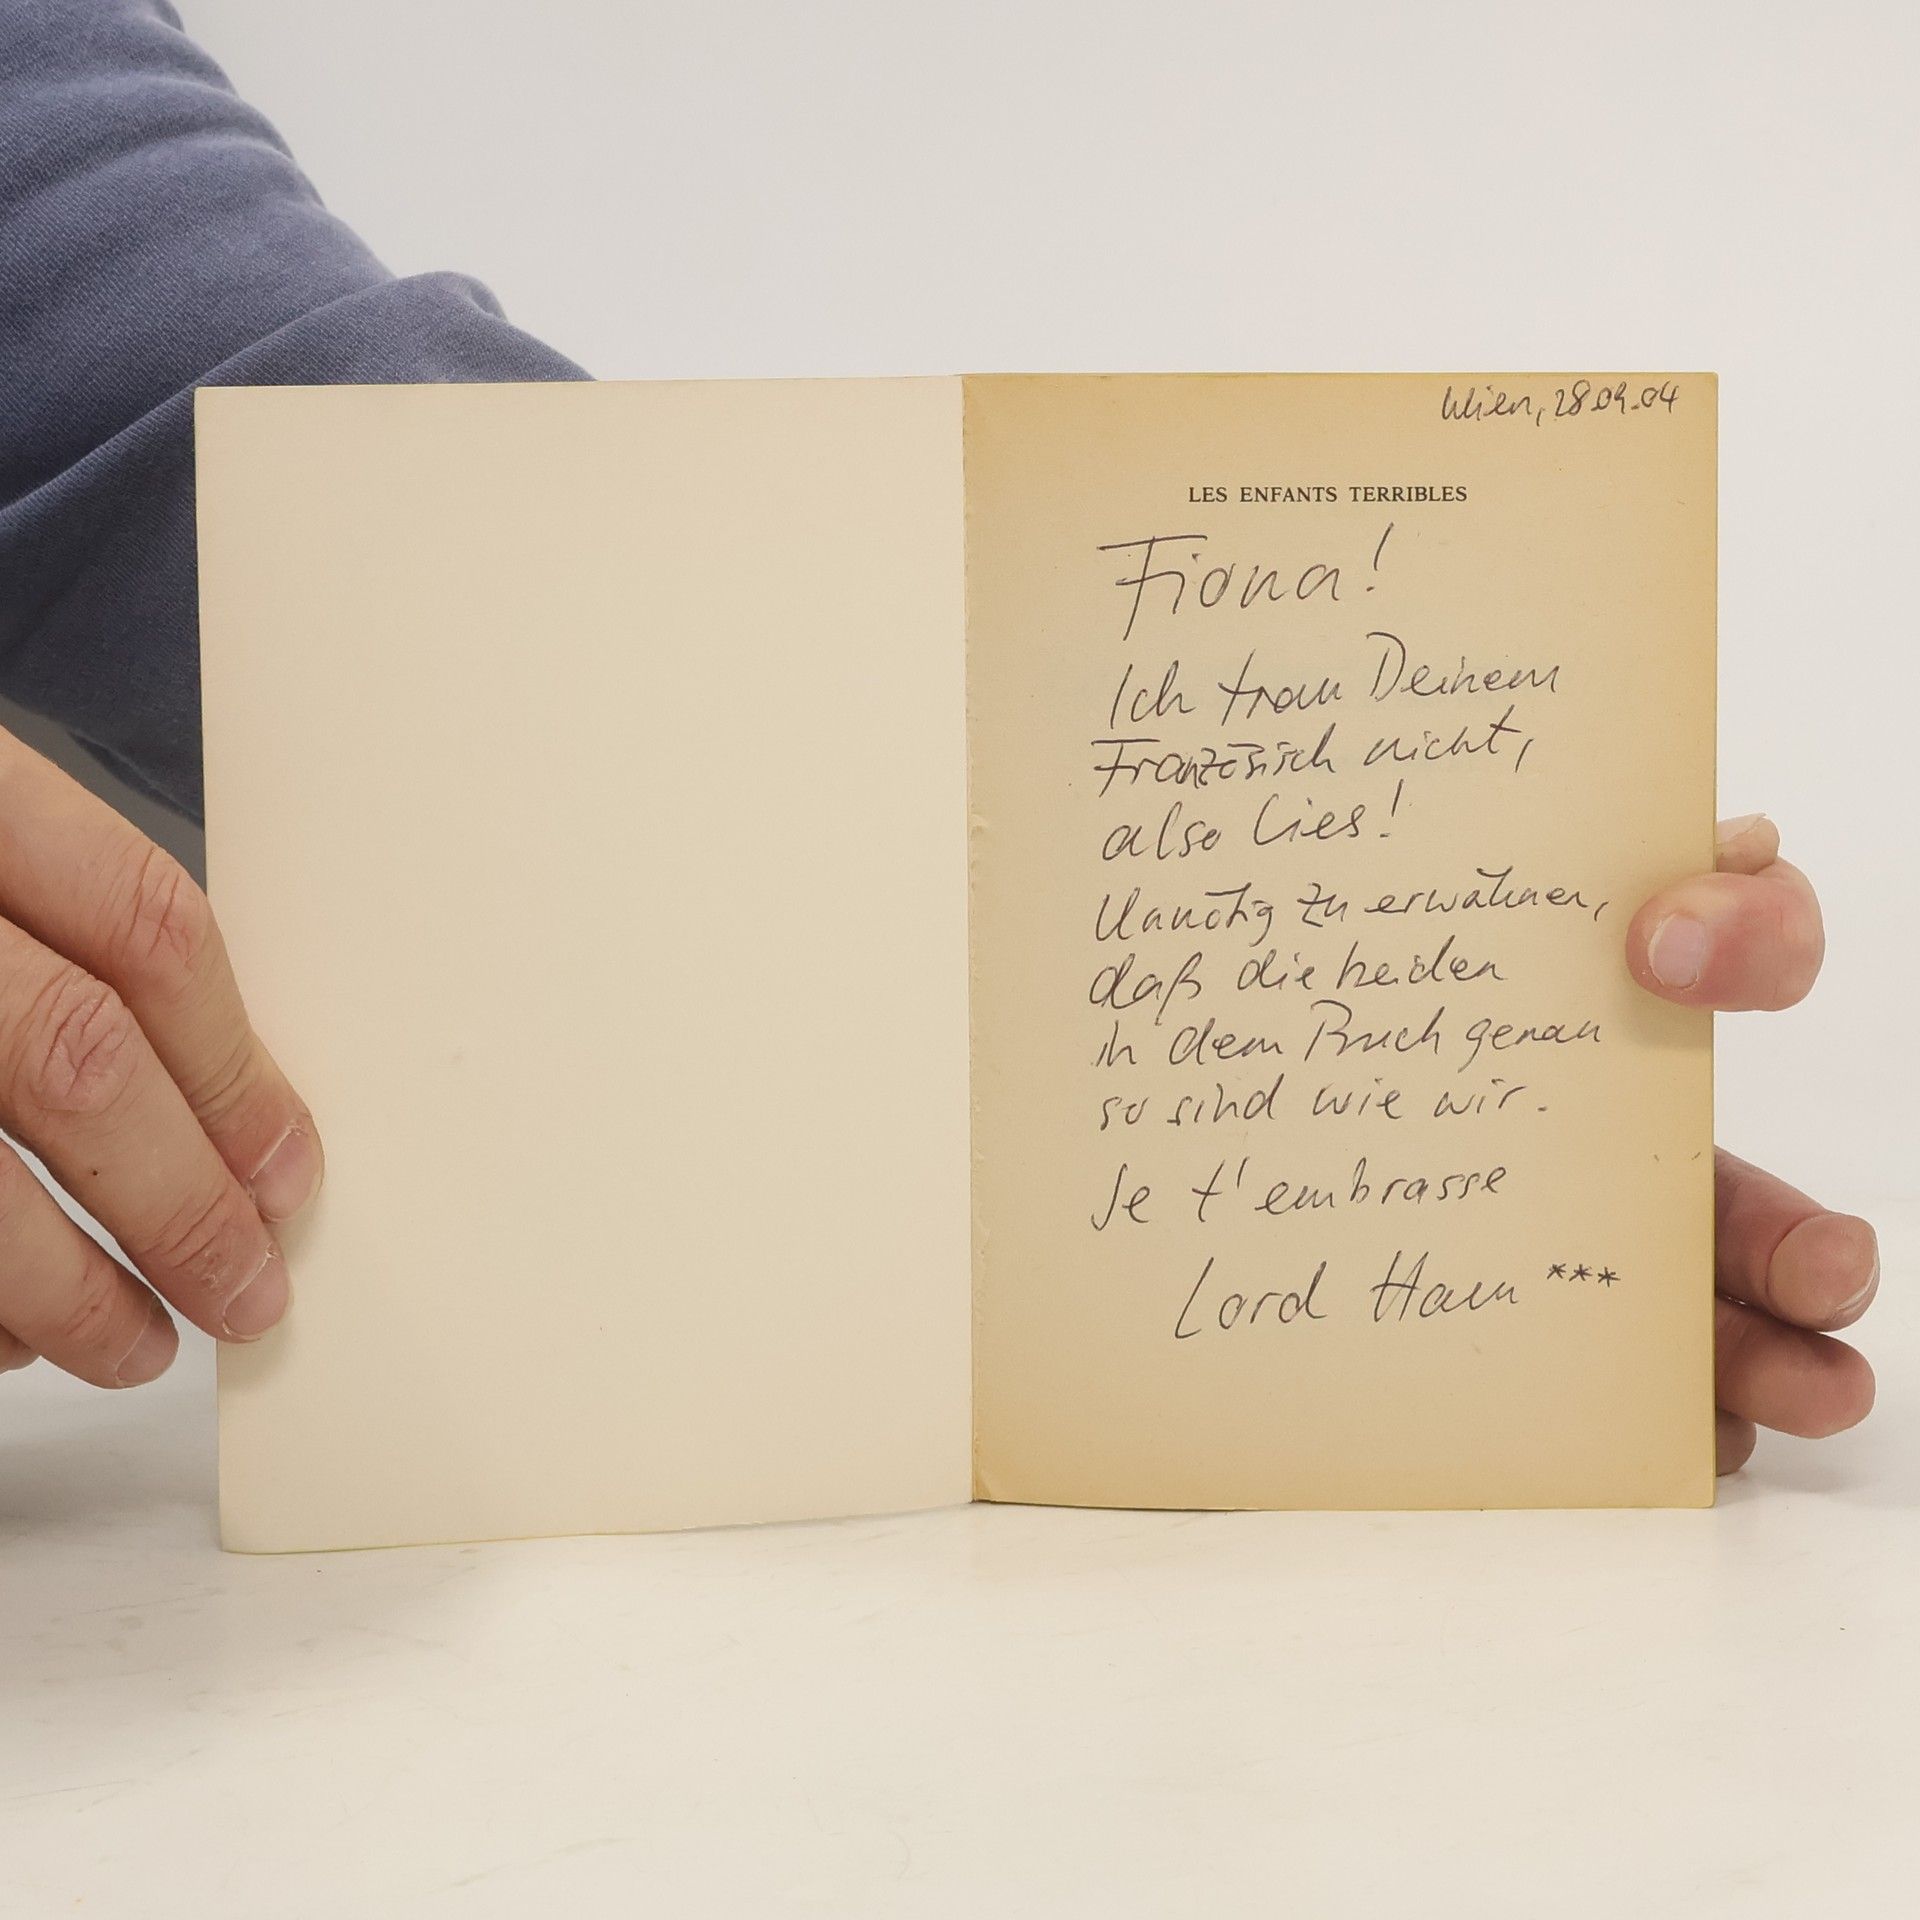 Wien, 28.09.04
LES ENFANTS TERRIBLES
Fiona!
Ich trau Deinem
Französisch nicht,
also lies!
Unnötig zu erwähnen,
daß die beiden
in dem Buch genau
so sind wie wir.
Je t'embrasse
Lord Ham ***